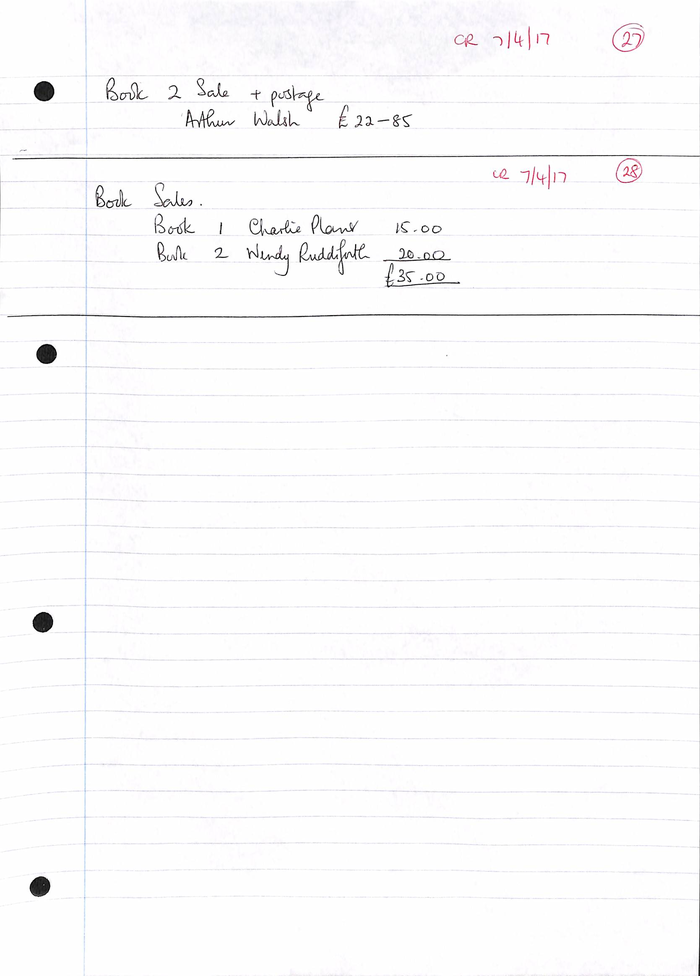 CR 7/4/17 27
Book 2 Sale + postage
Arthur Walsh £22-85
CR 7/4/17 28
Book Sales.
Book 1 Charlie 15.00
Book 2 Wendy Ruddiforth 20.00
£35.00